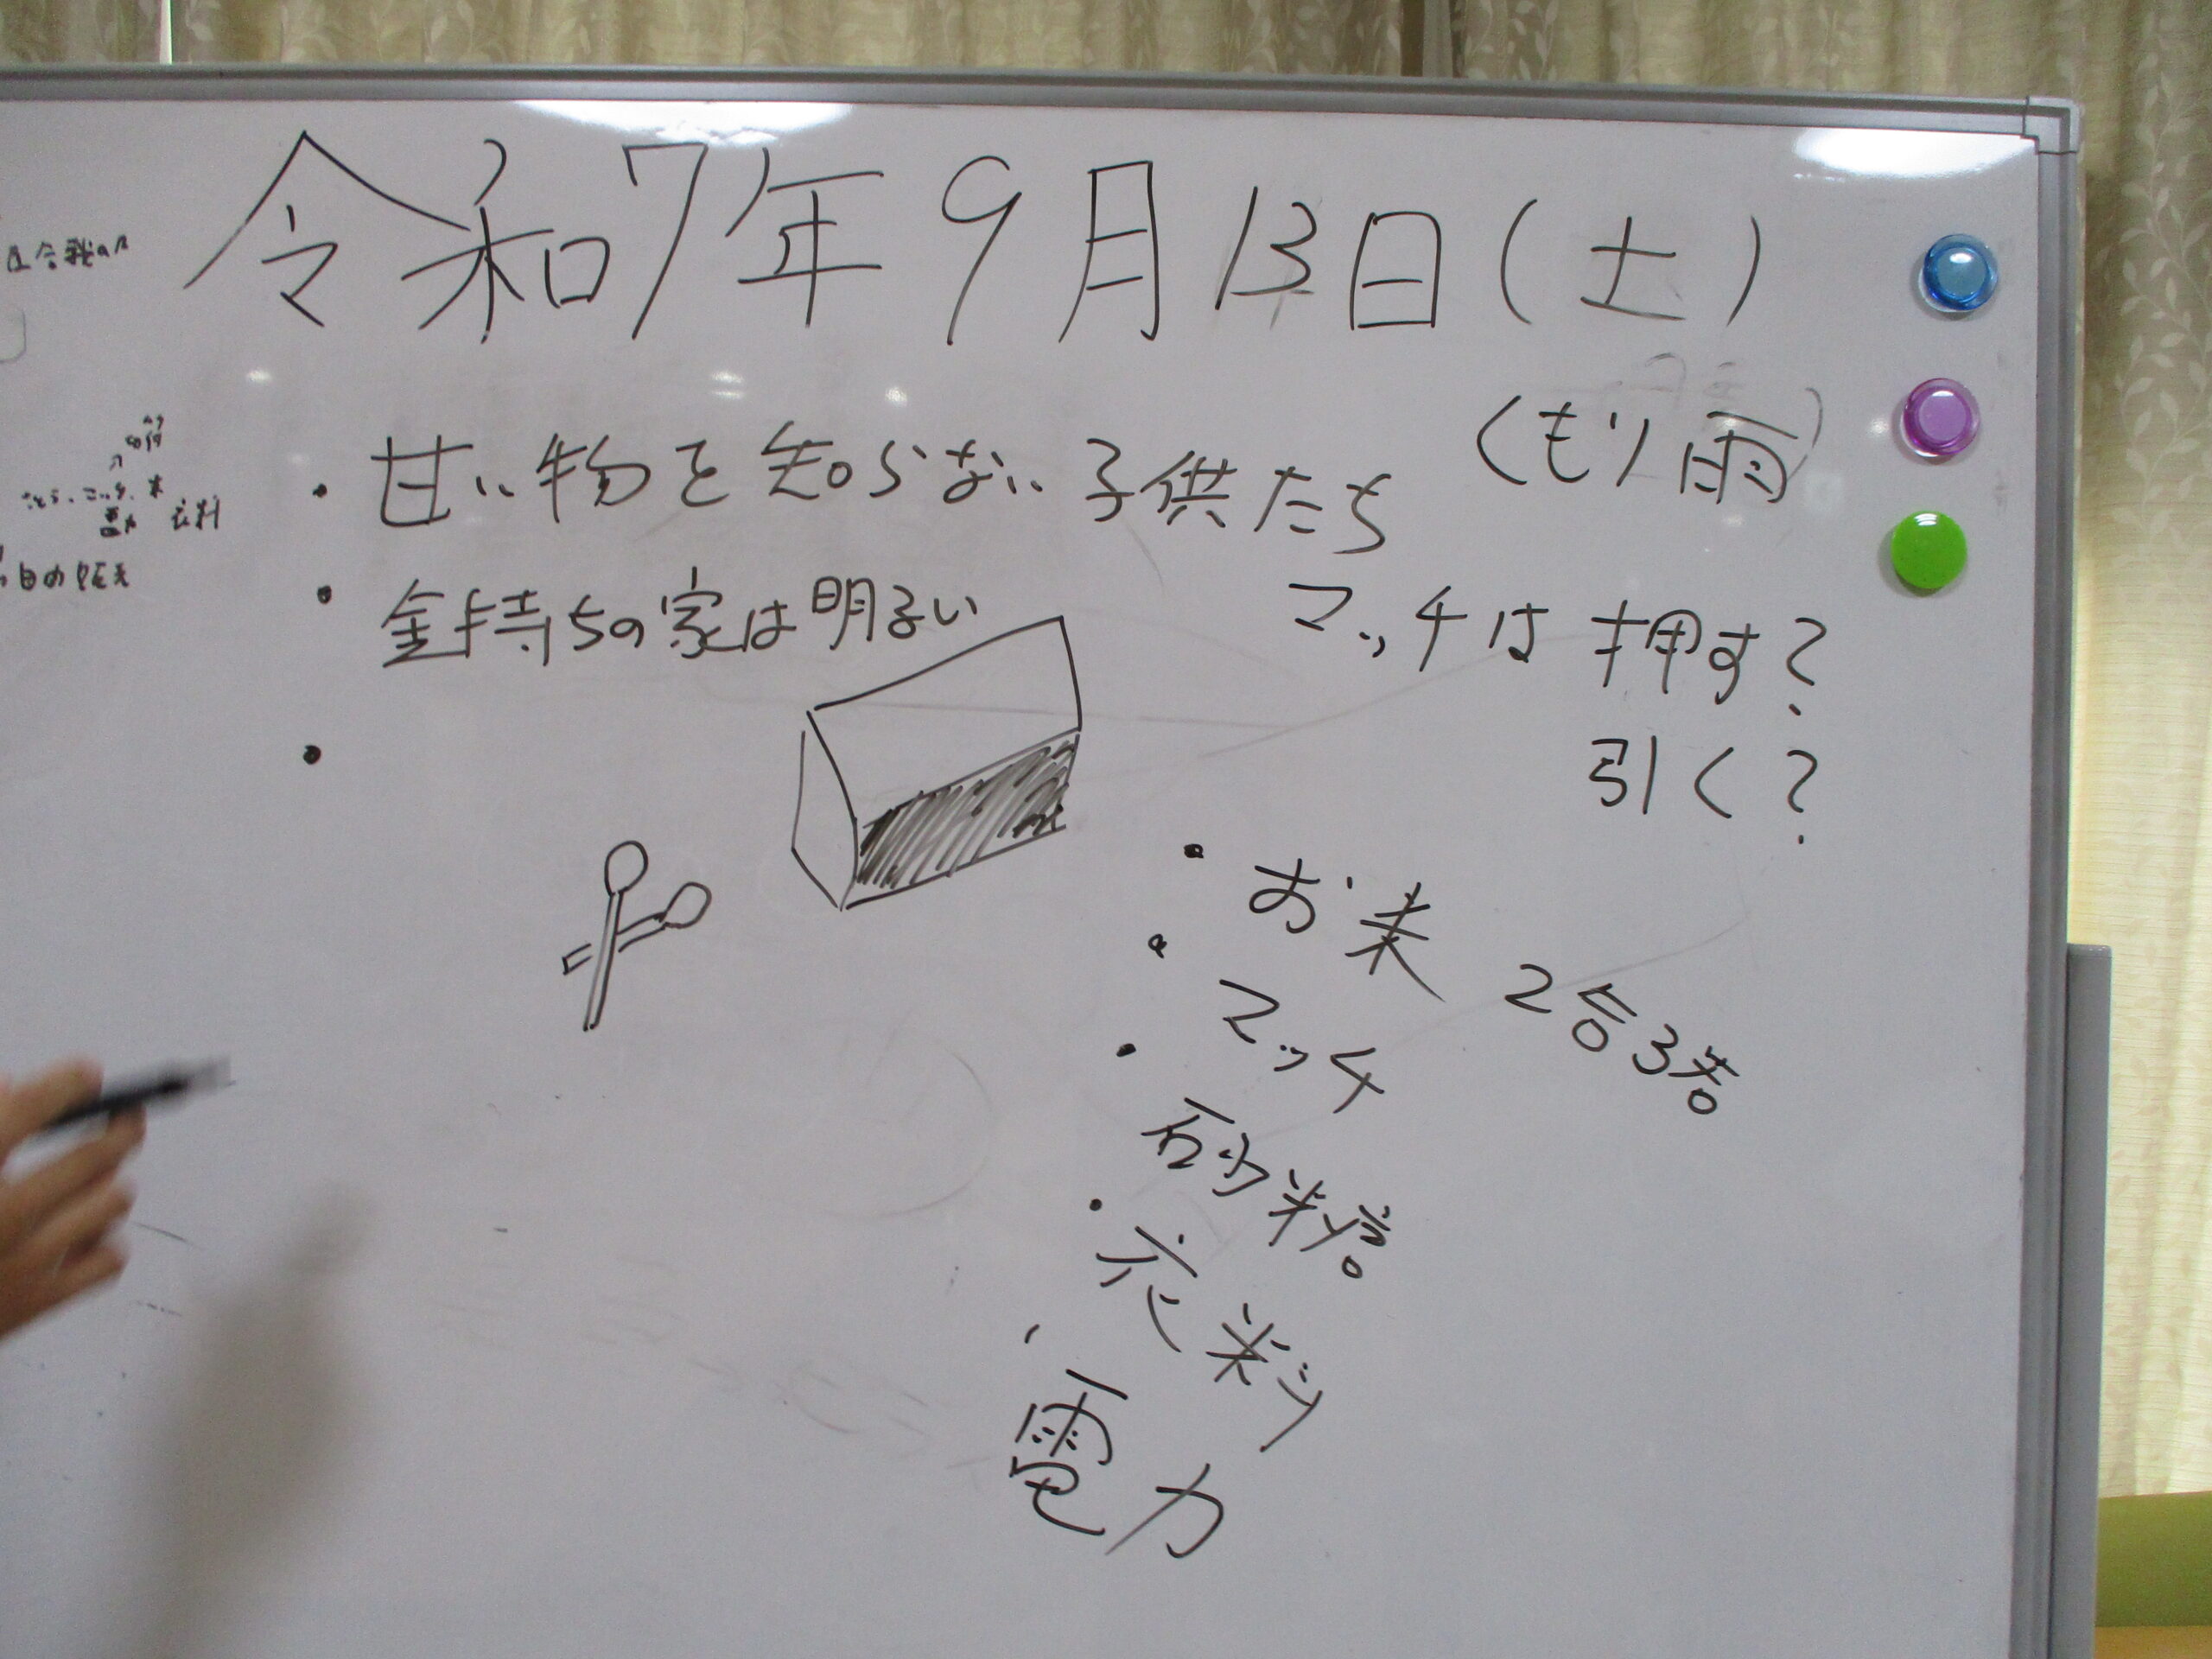 令和7年9月13日(土)
くもり雨
・甘い物を知らない子供たち
・金持ちの家は明るい
マッチは押す?
引く?
・
・お米 2合3勺
・マッチ
・砂糖
・衣料
・電力
衣料